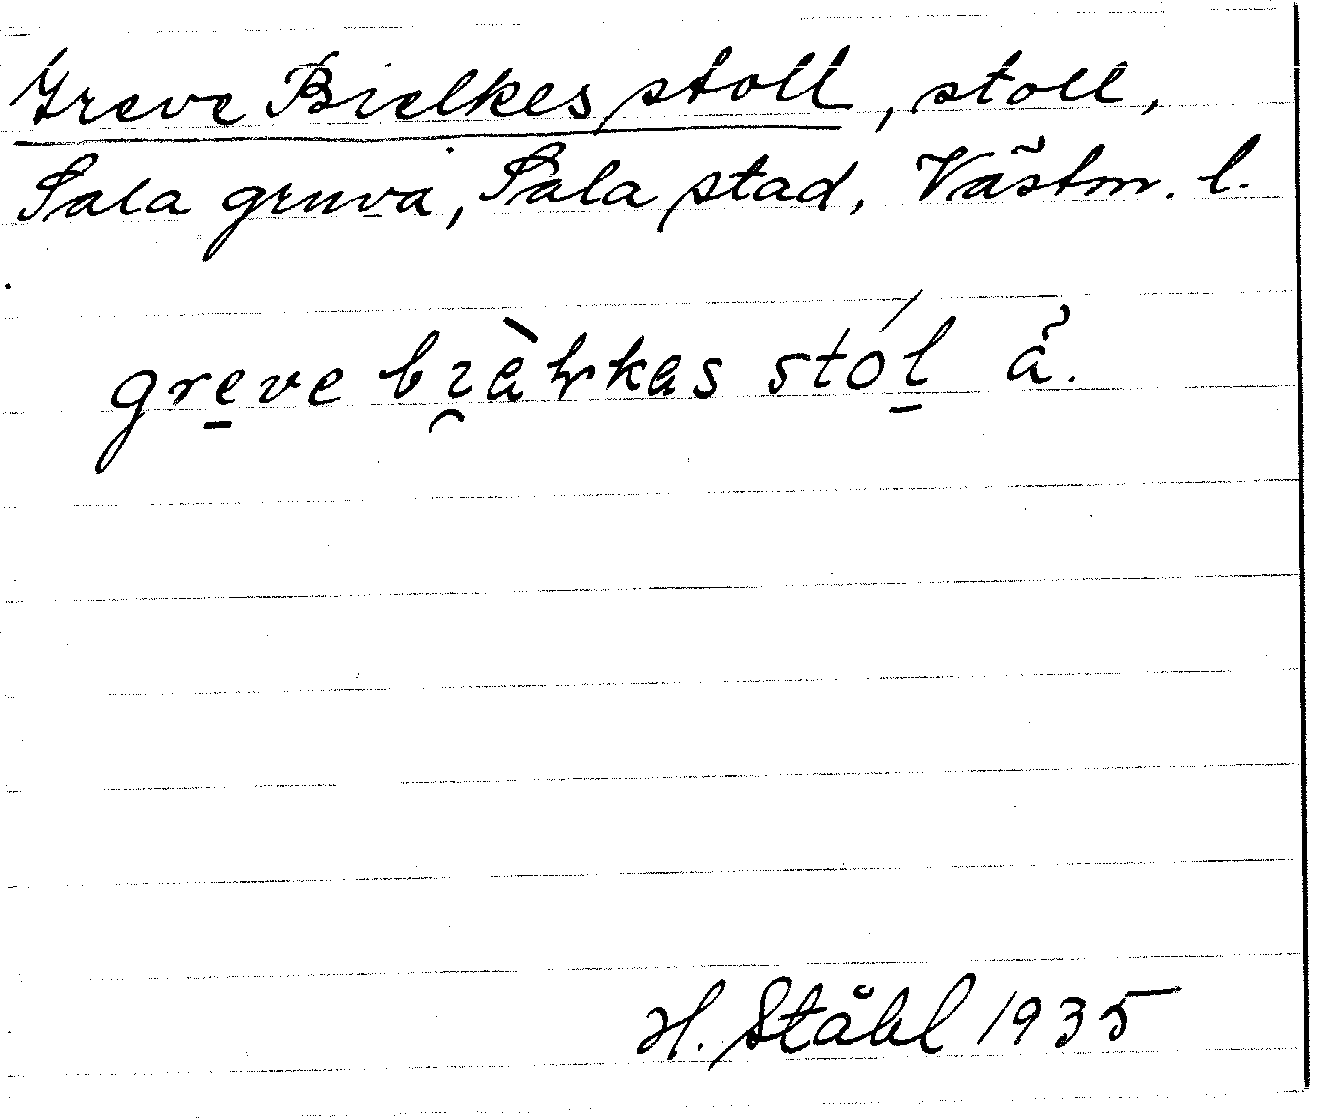 Greve Bielkes stoll, stoll,
Sala gruva, Sala stad, Västm. l.
greve stól å.
H. Ståhl 1935